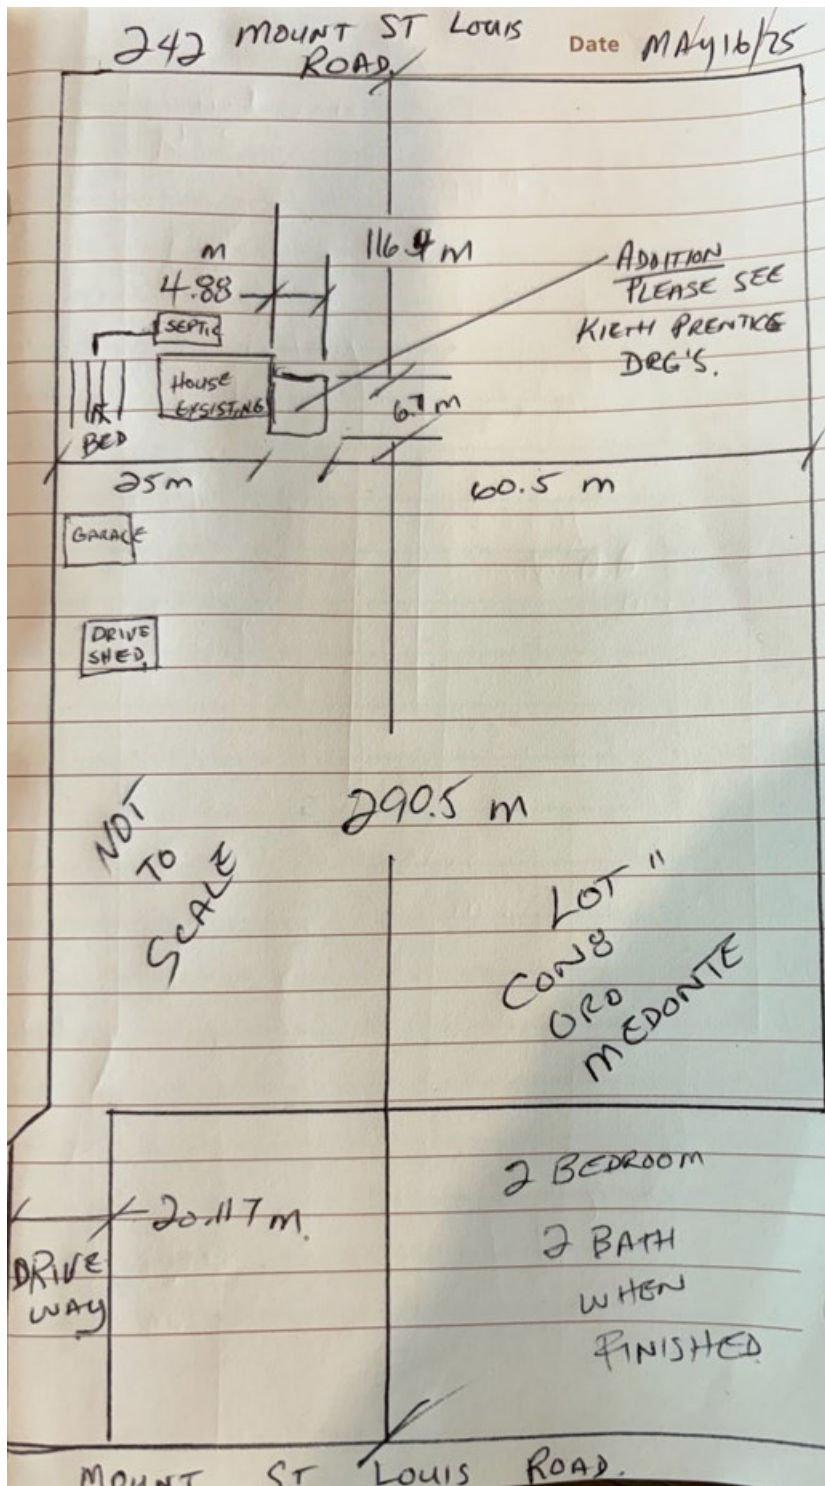 242 MOUNT ST LOUIS
ROAD.
Date MAY16/25
m
4.88
116.4 m
ADDITION
PLEASE SEE
KIETH PRENTICE
DRG'S.
SEPTIC
HOUSE
EXSISTING
BED
6.7 m
25m
60.5 m
GARAGE
DRIVE
SHED.
290.5 m
NOT
TO
SCALE
LOT 11
CON8
ORO
MEDONTE
20.117 m.
DRIVE
WAY
2 BEDROOM
2 BATH
WHEN
FINISHED.
MOUNT ST LOUIS ROAD.